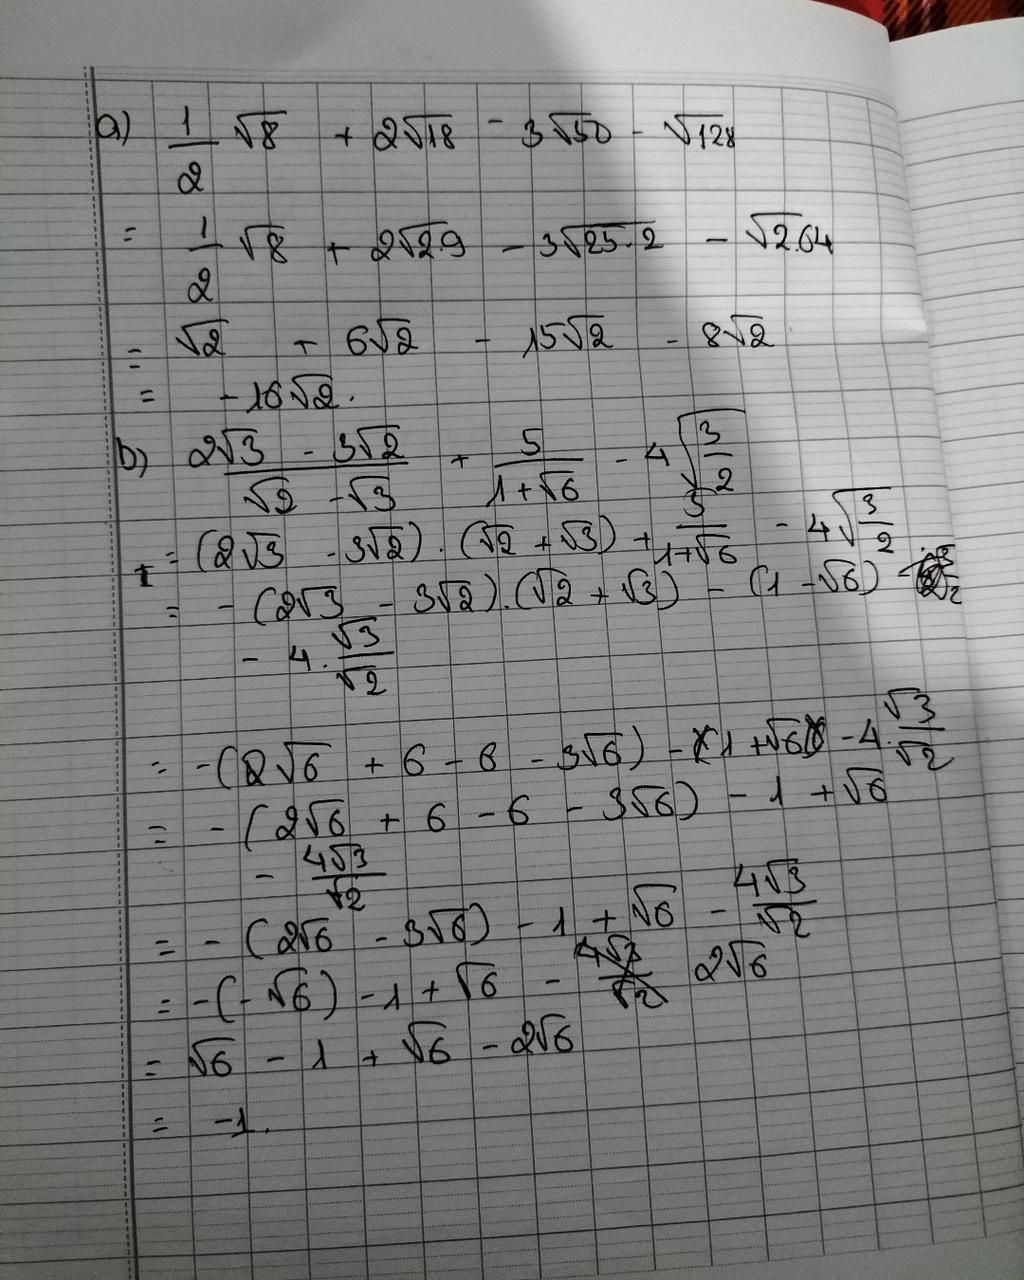 a) 1/2 √8 + 2√18 - 3√50 - √128
= 1/2 √8 + 2√2.9 - 3√25.2 - √2.64
= √2 + 6√2 - 15√2 - 8√2
= -16√2.
b) (2√3 - 3√2)/(√2 - √3) + 5/(1+√6) - 4√(3/2)
= (2√3 - 3√2).(√2 + √3) + 5/(1+√6) - 4√(3/2)
= -(2√3 - 3√2).(√2 + √3) - (1 - √6)
- 4.√3/√2
= -(2√6 + 6 - 6 - 3√6) - 1 + √6 - 4.√3/√2
= -(2√6 + 6 - 6 - 3√6) - 1 + √6
- 4√3/√2
= -(2√6 - 3√6) - 1 + √6 - 4√3/√2
= -(-√6) - 1 + √6 - 2√6
= √6 - 1 + √6 - 2√6
= -1.